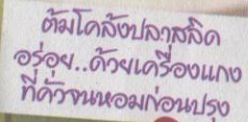 ต้มโคล้งปลาสลิด
อร่อย..ด้วยเครื่องแกง
ที่คั่วจนหอมก่อนปรุง